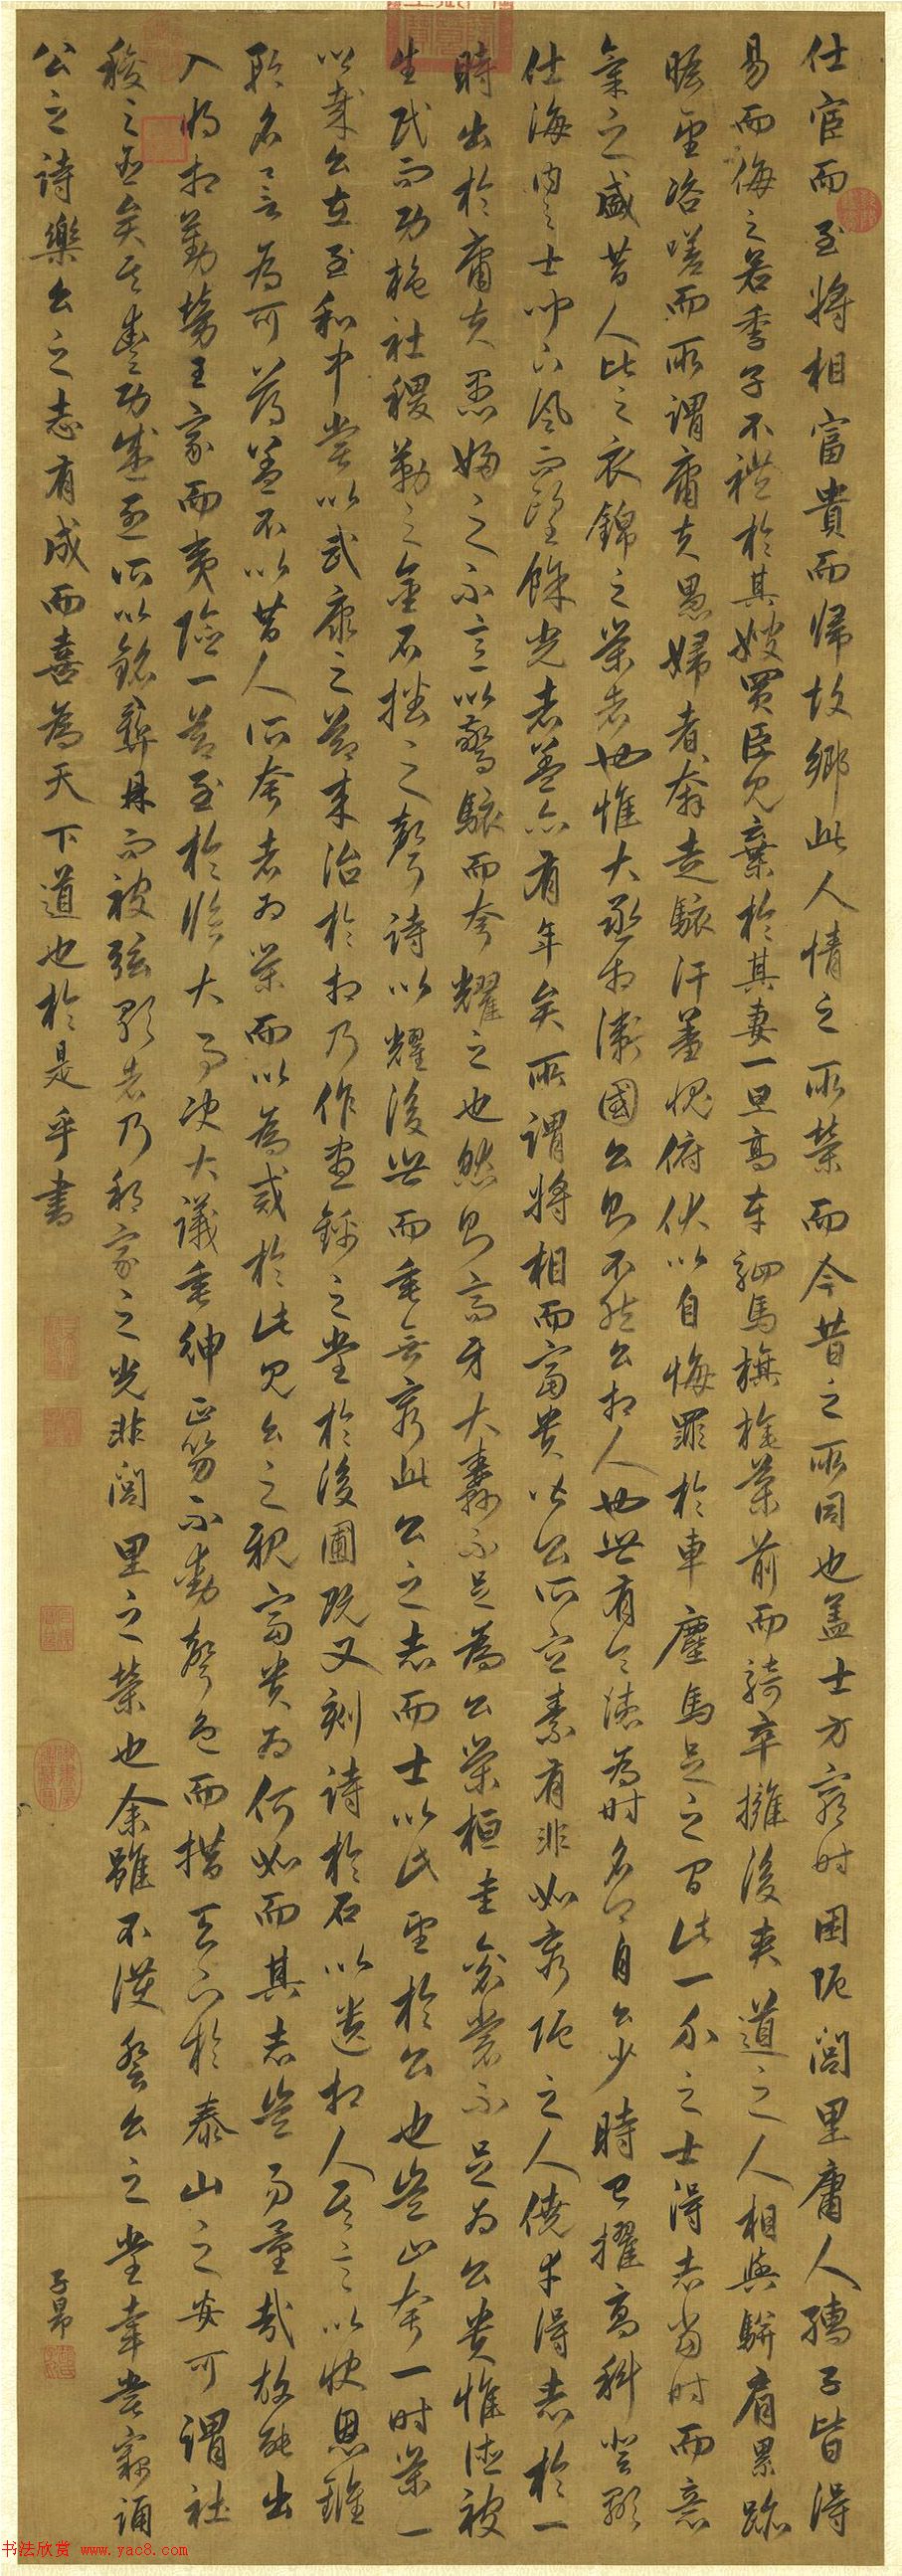 仕宦而至將相富貴而歸故鄉此人情之所榮而今昔之所同也蓋士方窮時困阨閭里庸人孺子皆得
易而侮之若季子不禮於其嫂買臣見棄於其妻一旦高車駟馬旗旄導前而騎卒擁後夾道之人相與駢肩累跡
瞻望咨嗟而所謂庸夫愚婦者奔走駭汗羞愧俯伏以自悔罪於車塵馬足之間此一介之士得志當時而意
氣之盛昔人比之衣錦之榮者也惟大丞相衛國公則不然公相人也世有令德為時名卿自公少時已擢高科登顯
仕海內之士聞下風而望餘光者蓋亦有年矣所謂將相而富貴皆公所宜素有非如窮阨之人僥幸得志於一
時出於庸夫愚婦之不意以驚駭而夸耀之也然則高牙大纛不足為公榮桓圭袞裳不足為公貴惟德被
生民而功施社稷勒之金石播之聲詩以耀後世而垂無窮此公之志而士以此望於公也豈止夸一時榮一
以哉公在至和中嘗以武康之節來治於相乃作晝錦之堂於後圃既又刻詩於石以遺相人其言以快恩讎
矜名譽為可薄蓋不以昔人所夸者為榮而以為戒於此見公之視富貴為何如而其志豈易量哉故能出
入將相勤勞王家而夷險一節至於臨大事決大議垂紳正笏不動聲色而措天下於泰山之安可謂社
稷之臣矣其豐功盛烈所以銘彝鼎而被弦歌者乃邦家之光非閭里之榮也余雖不獲登公之堂幸嘗竊誦
公之詩樂公之志有成而喜為天下道也於是乎書
子昂
书法欣赏 www.yac8.com